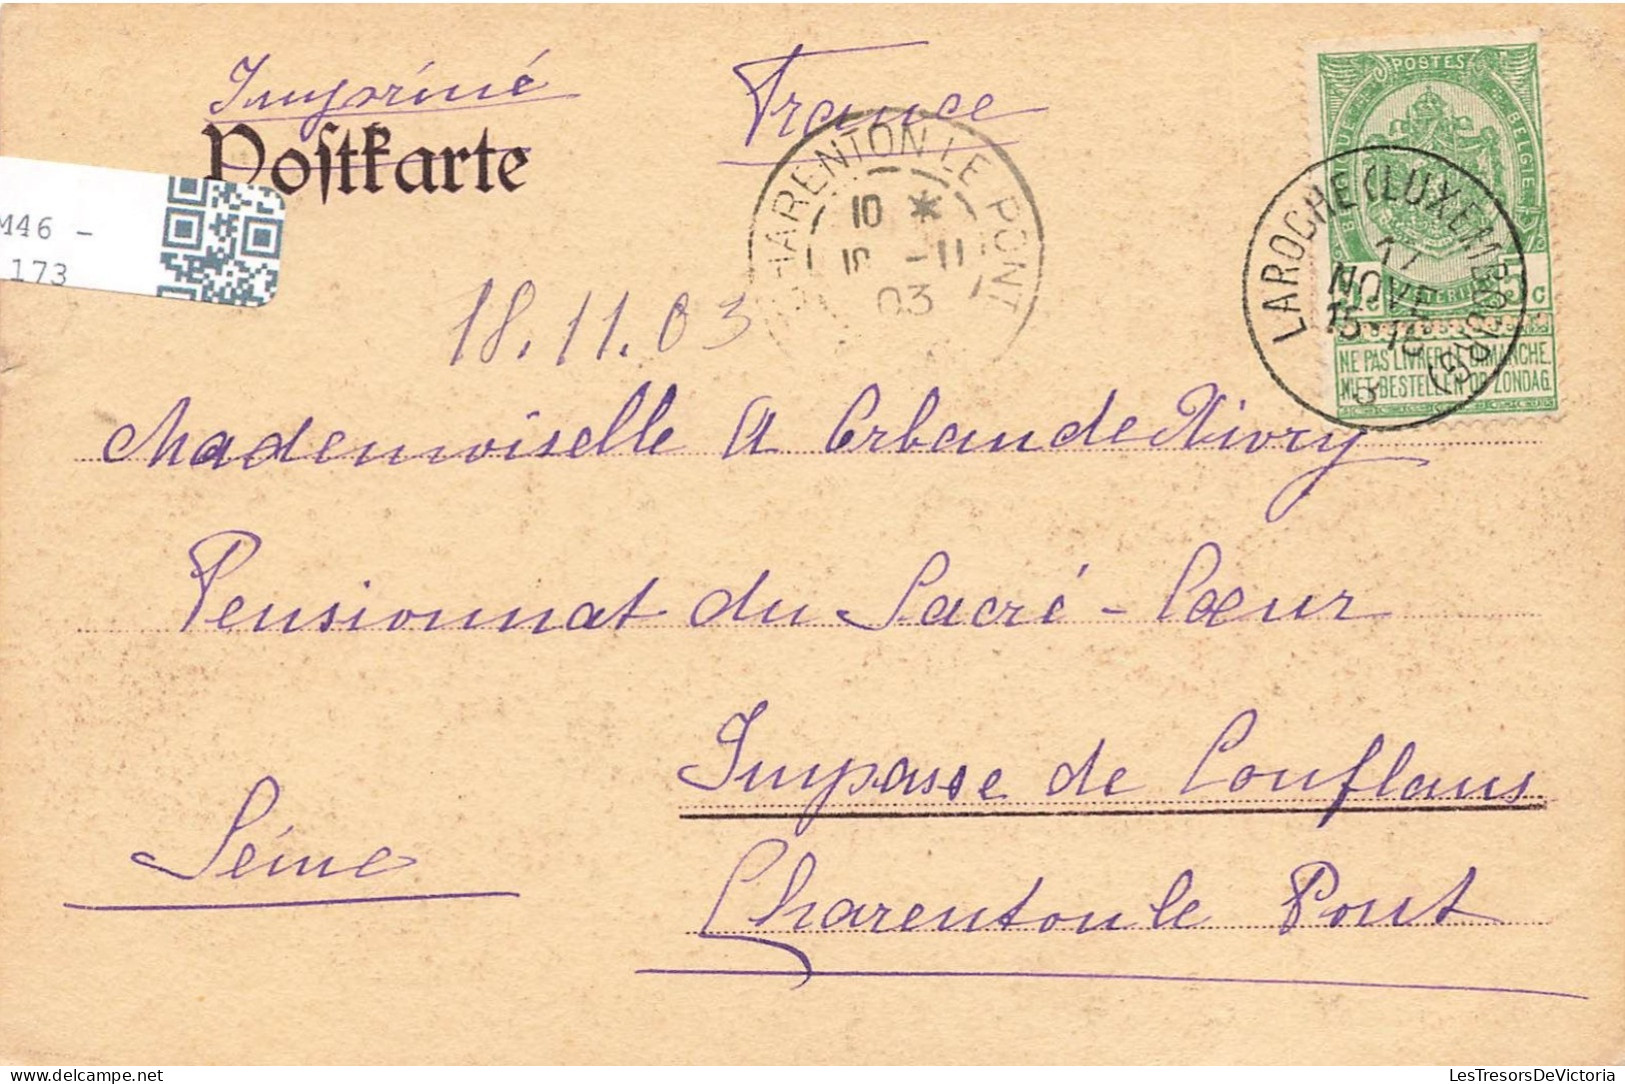 Imprimé France
Postkarte
M46 -
173
CHARENTON LE PONT
10 *
18 -11
03
POSTES
BELGIE
LAROCHE (LUXEMBOURG)
17
NOVE
15-16
3
5 c
NE PAS LIVRER LE DIMANCHE.
NIET BESTELLEN OP ZONDAG.
18.11.03
Mademoiselle A
Pensionnat du Sacré-Cœur
Impasse de Conflans
Seine
Charenton le Pont
LesTresorsDeVictoria
www.delcampe.net